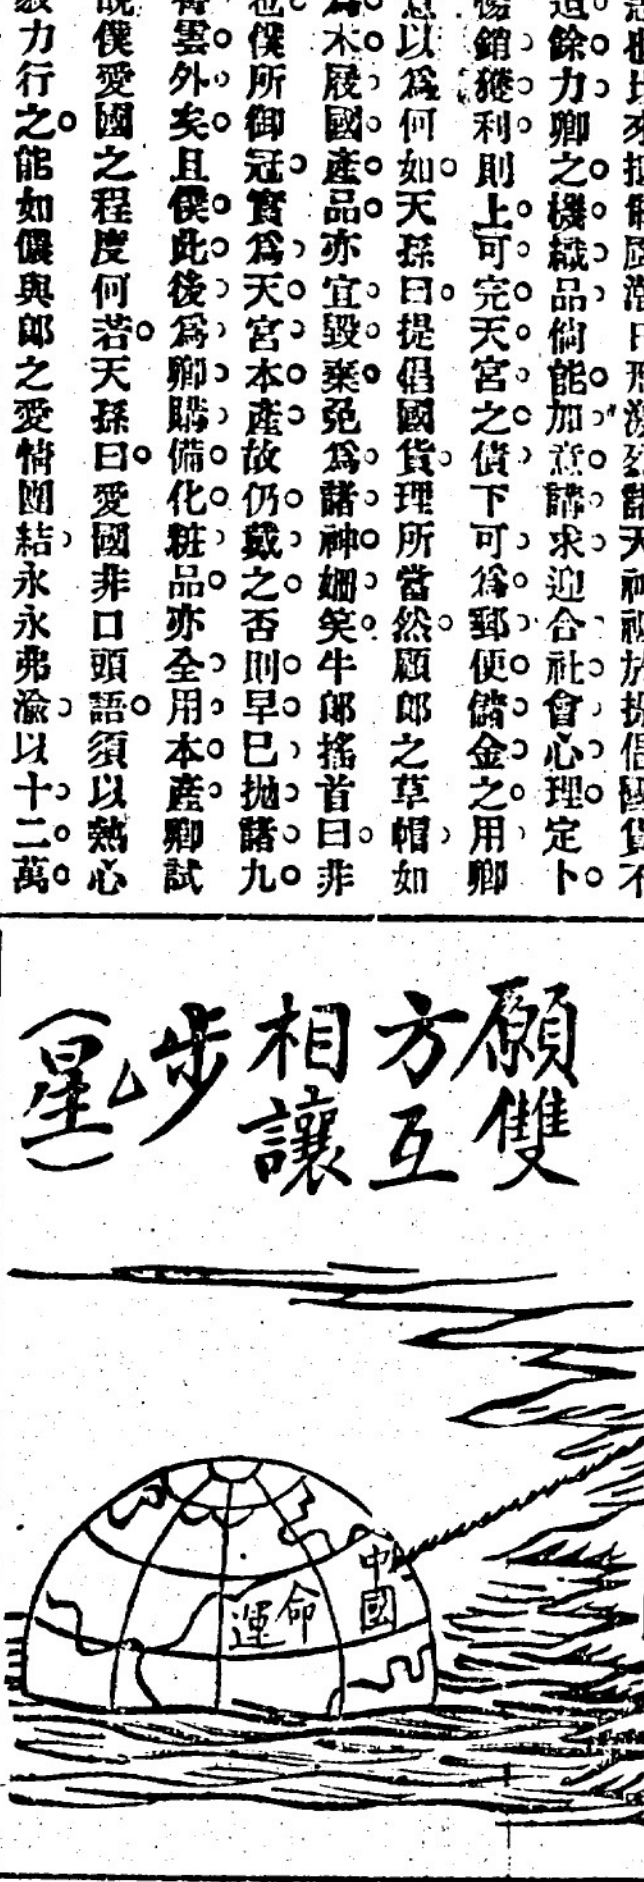 餘力卿之機織品倘能加意講求迎合社會心理定卜
銷獲利則上可完天宮之債下可爲郵便儲金之用卿
以爲何如天孫曰提倡國貨理所當然願郎之草帽如
木屐國產品亦宜毀棄免爲諸神姍笑牛郎搖首曰非
也僕所御冠實爲天宮本產故仍戴之否則早已拋諸九
霄雲外矣且僕此後爲卿購備化粧品亦全用本產卿試
說僕愛國之程度何若天孫曰愛國非口頭語須以熱心
毅力行之能如儂與郎之愛情團結永永弗渝以十二萬
願雙
方互
相讓
步
(星)
中國
命運